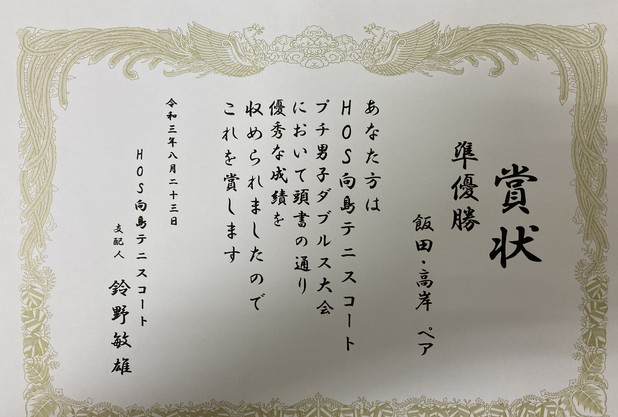 賞状
準優勝
飯田・高岸 ペア
あなた方は
HOS向島テニスコート
プチ男子ダブルス大会
において頭書の通り
優秀な成績を
収められましたので
これを賞します
令和三年八月二十三日
HOS向島テニスコート
支配人 鈴野敏雄